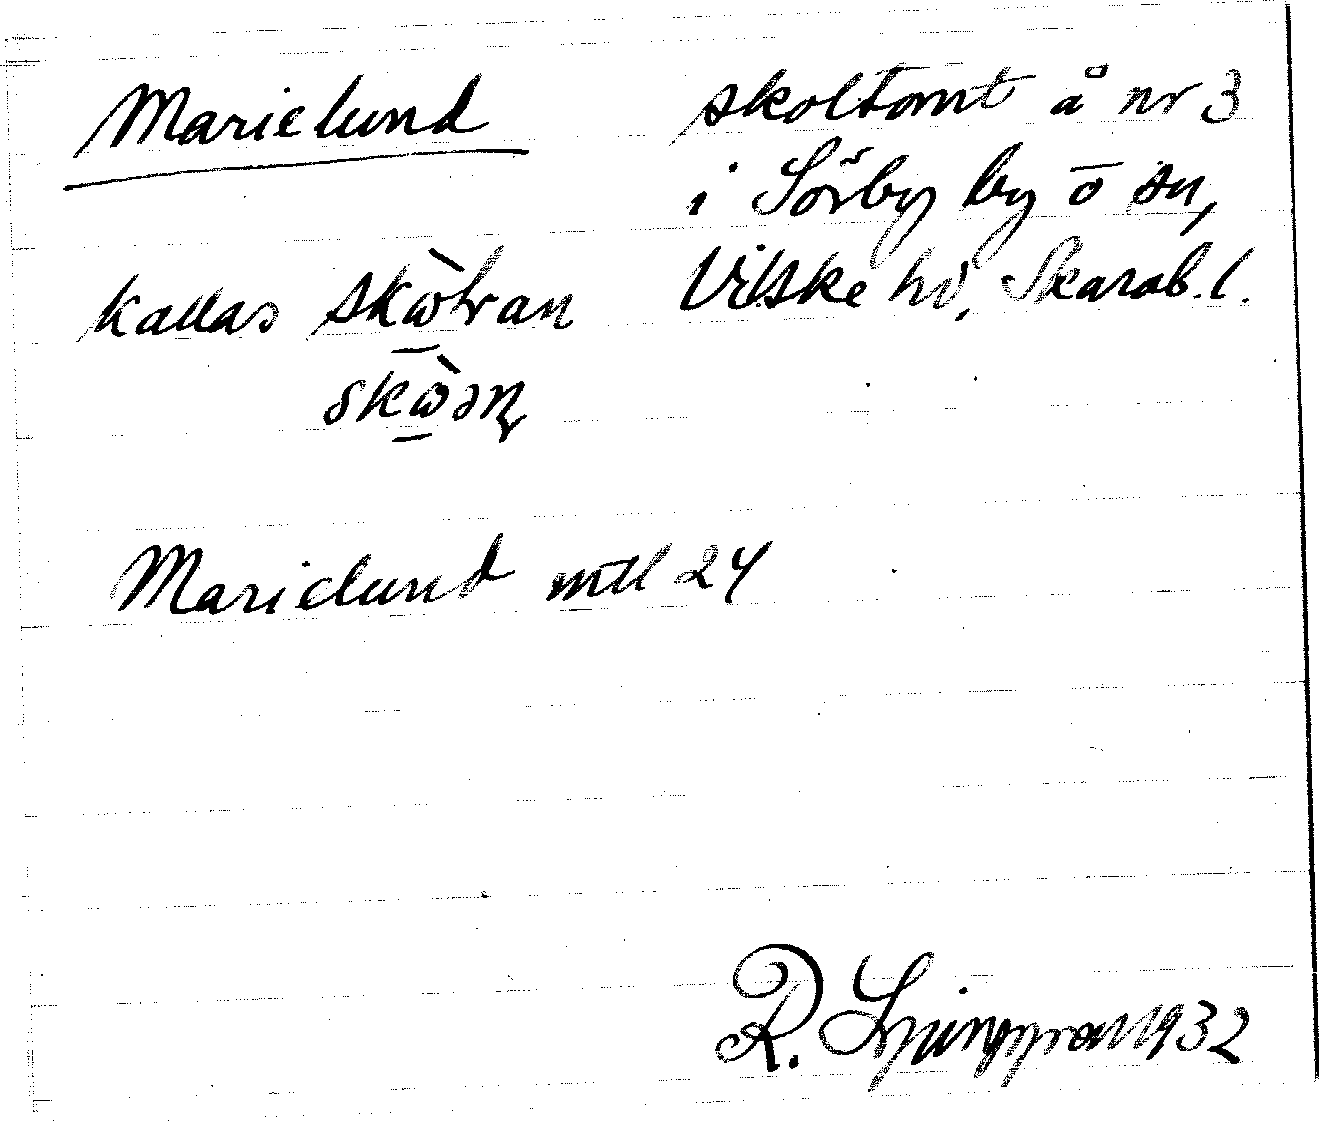 Marielund
skoltomt å nr 3
i Sörby by o sn,
Vilske hd, Skarab. l.
kallas
Marielund mtl 24
R. Ljunggren 1932